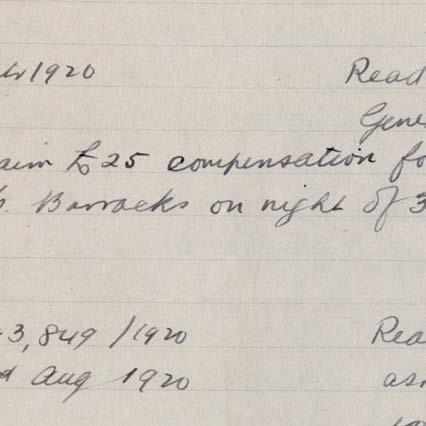 1920 Read
Gene
aim £25 compensation fo
Barracks on night of 3
3,849/1920 Rea
Aug 1920 as